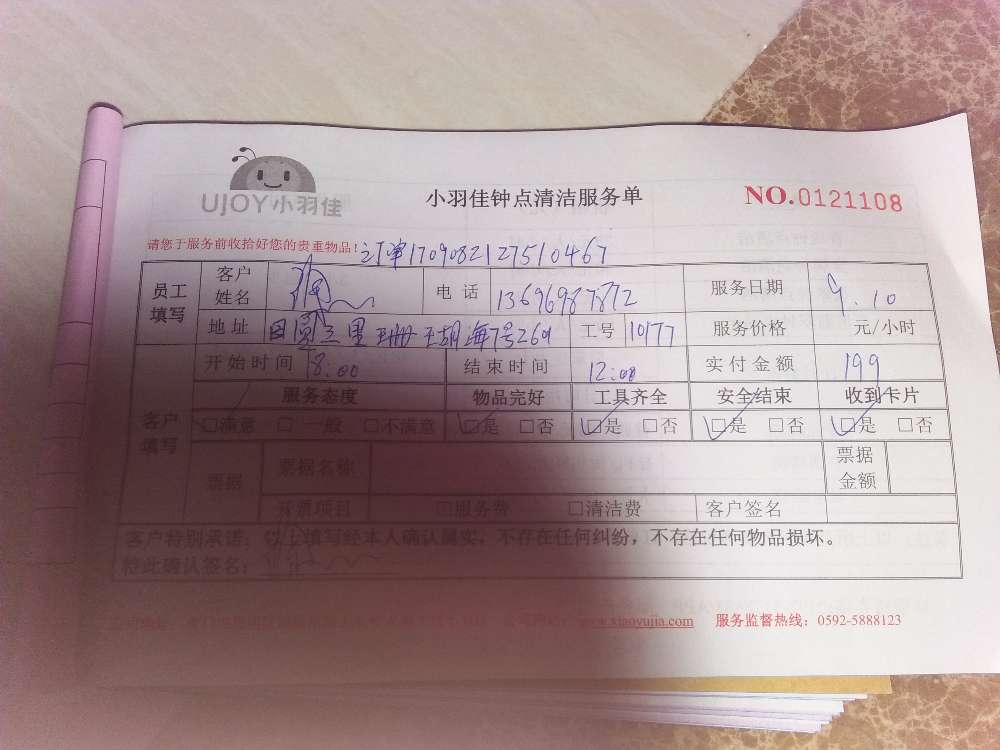 UJOY小羽佳
小羽佳钟点清洁服务单
NO.0121108
请您于服务前收拾好您的贵重物品！订单1709082127510467
员工填写 客户姓名 电话 13696987872 服务日期 9.10
地址 三里 7号269 工号 10177 服务价格 元/小时
客户填写 开始时间 8:00 结束时间 12:00 实付金额 199
服务态度 物品完好 工具齐全 安全结束 收到卡片
□满意 □一般 □不满意 □是 □否 □是 □否 □是 □否 □是 □否
票据 票据名称 票据金额
开票项目 □服务费 □清洁费 客户签名
客户特别承诺：以上填写经本人确认属实，不存在任何纠纷，不存在任何物品损坏。
特此确认签名：
www.xiaoyujia.com 服务监督热线：0592-5888123